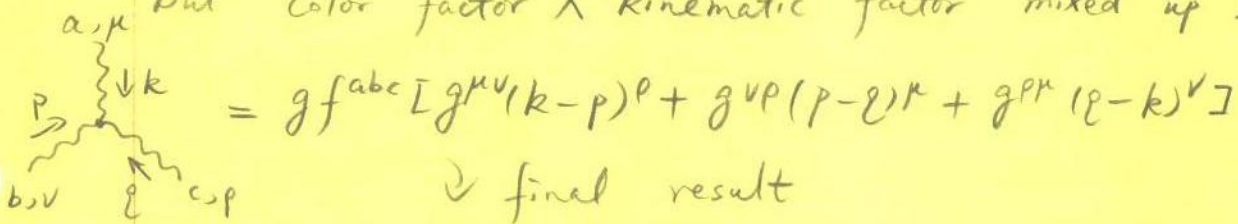 but color factor & kinematic factor mixed up.
a,μ
↓k
p
= g f^{abc} [g^{μν}(k-p)^ρ + g^{νρ}(p-q)^μ + g^{ρμ}(q-k)^ν]
b,ν q c,ρ
↓ final result